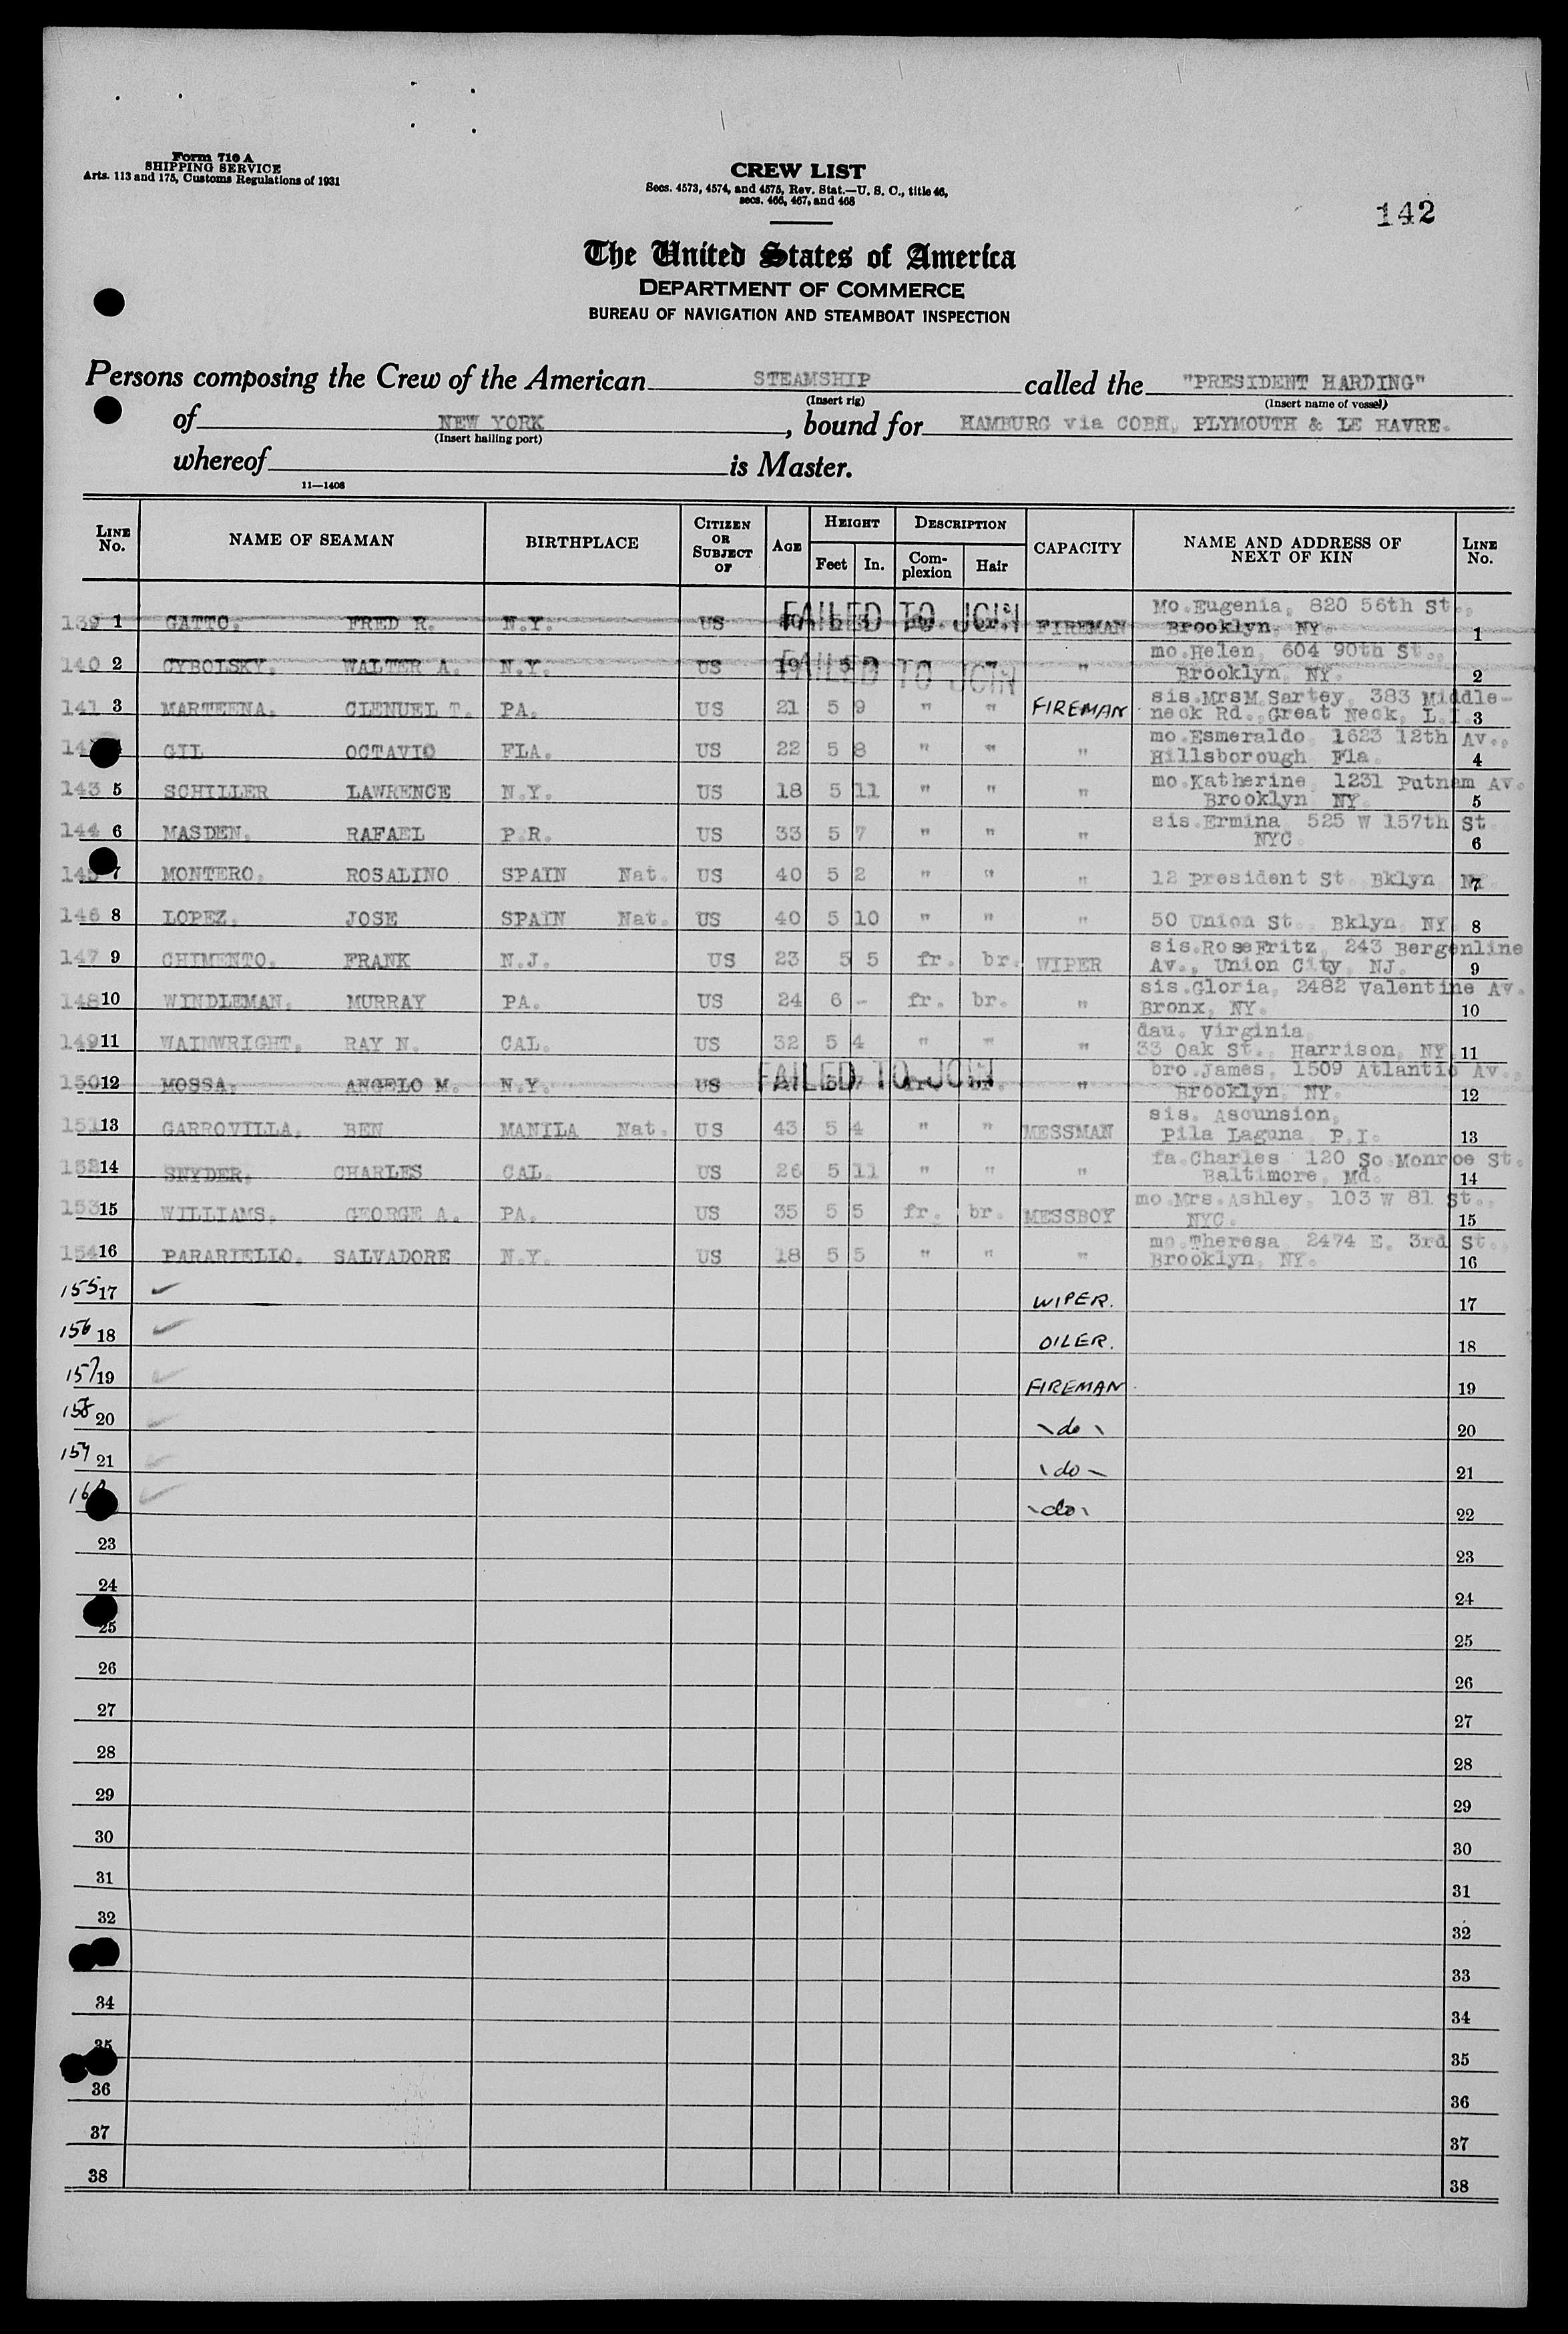 Form 710 A
SHIPPING SERVICE
Arts. 113 and 175, Customs Regulations of 1931
CREW LIST
Secs. 4573, 4574, and 4575, Rev. Stat.—U. S. C., title 46,
secs. 466, 467, and 468
142
The United States of America
DEPARTMENT OF COMMERCE
BUREAU OF NAVIGATION AND STEAMBOAT INSPECTION
Persons composing the Crew of the American STEAMSHIP called the "PRESIDENT HARDING"
(Insert rig) (Insert name of vessel)
of NEW YORK, bound for HAMBURG via COBH, PLYMOUTH & LE HAVRE.
(Insert hailing port)
whereof is Master.
11—1408
LINE No. NAME OF SEAMAN BIRTHPLACE CITIZEN OR SUBJECT OF AGE HEIGHT Feet In. DESCRIPTION Complexion Hair CAPACITY NAME AND ADDRESS OF NEXT OF KIN LINE No.
139 1 GATTO, FRED R. N.Y. US FAILED TO JOIN FIREMAN Mo.Eugenia, 820 56th St., Brooklyn, NY. 1
140 2 CYBOLSKY, WALTER A. N.Y. US 19 5 FAILED TO JOIN " mo.Helen, 604 90th St., Brooklyn, NY. 2
141 3 MARTEENA, CLENUEL T. PA. US 21 5 9 " " FIREMAN sis.MrsM.Sartey, 383 Middle-neck Rd., Great Neck, L.I. 3
GIL OCTAVIO FLA. US 22 5 8 " " " mo.Esmeraldo, 1623 12th Av., Hillsborough, Fla. 4
143 5 SCHILLER LAWRENCE N.Y. US 18 5 11 " " " mo.Katherine, 1231 Putnam Av. Brooklyn, NY. 5
144 6 MASDEN, RAFAEL P.R. US 33 5 7 " " " sis.Ermina, 525 W 157th St NYC. 6
145 7 MONTERO, ROSALINO SPAIN Nat. US 40 5 2 " " " 12 President St. Bklyn, NY. 7
146 8 LOPEZ, JOSE SPAIN Nat. US 40 5 10 " " " 50 Union St., Bklyn, NY 8
147 9 CHIMENTO, FRANK N.J. US 23 5 5 fr. br. WIPER sis.RoseFritz, 243 Bergenline Av., Union City, NJ. 9
148 10 WINDLEMAN, MURRAY PA. US 24 6 - fr. br. " sis.Gloria, 2482 Valentine Av. Bronx, NY. 10
149 11 WAINWRIGHT, RAY N. CAL. US 32 5 4 " " " dau. Virginia, 33 Oak St., Harrison, NY. 11
150 12 MOSSA, ANGELO M. N.Y. US FAILED TO JOIN " bro.James, 1509 Atlantic Av., Brooklyn, NY. 12
151 13 GARROVILLA, BEN MANILA Nat. US 43 5 4 " " MESSMAN sis. Ascunsion, Pila Laguna, P.I. 13
152 14 SNYDER, CHARLES CAL. US 26 5 11 " " " fa.Charles, 120 So.Monroe St. Baltimore, Md. 14
153 15 WILLIAMS, GEORGE A. PA. US 35 5 5 fr. br. MESSBOY mo.Mrs.Ashley, 103 W 81 St., NYC. 15
154 16 PARARIELLO, SALVADORE N.Y. US 18 5 5 " " " mo.Theresa, 2474 E. 3rd St., Brooklyn, NY. 16
155 17 ✓ WIPER. 17
156 18 ✓ OILER. 18
157 19 ✓ FIREMAN 19
158 20 ✓ do 20
159 21 ✓ do 21
✓ do 22
23 23
24 24
25 25
26 26
27 27
28 28
29 29
30 30
31 31
32 32
33
34 34
35 35
36 36
37 37
38 38